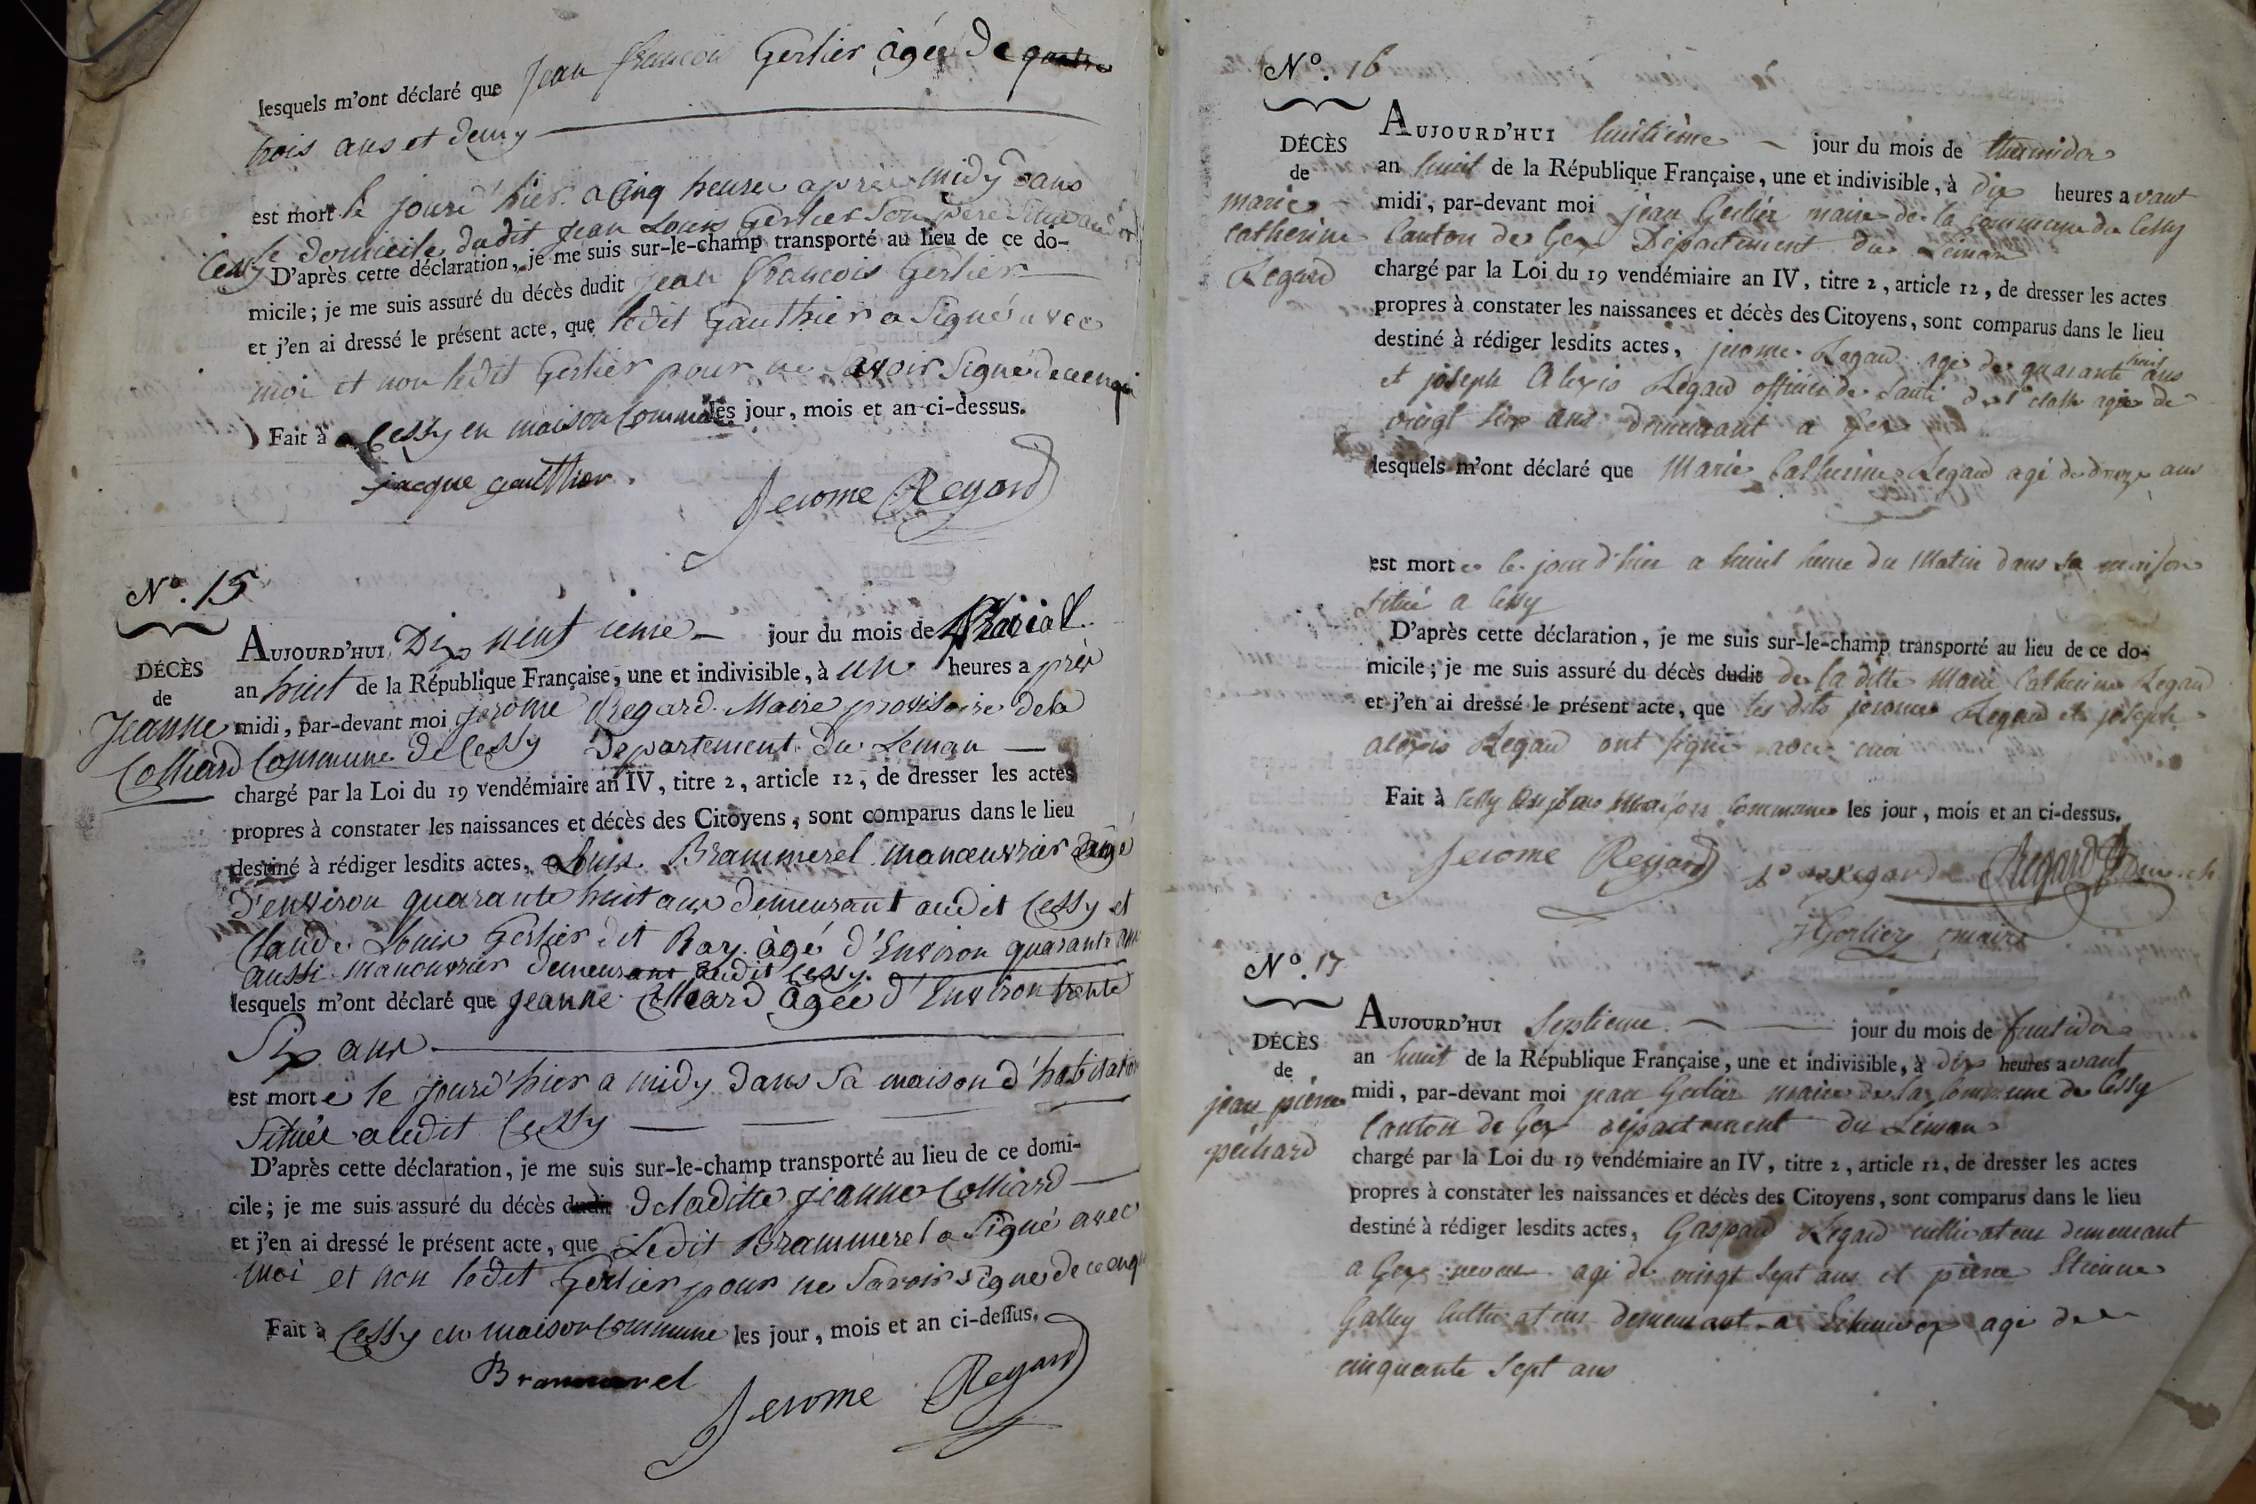 lesquels m'ont déclaré que jean françois Gerlier âgé de quatre
trois ans et demy
est mort le jourd'hier a Cinq heures après midy dans
le domicile dudit jean Louis Gerlier son père situé audit
Cessy D'après cette déclaration, je me suis sur-le-champ transporté au lieu de ce do-
micile; je me suis assuré du décès dudit jean françois Gerlier
et j'en ai dressé le présent acte, que ledit Gauthier a Signé avec
moi et non ledit Gerlier pour ne Savoir Signé de ce enqui
Fait à a Cessy en maison Commune les jour, mois et an ci-dessus.
jacque gaulthier
Jerome Regard
N.º 15
DÉCÈS
de
Jeanne
Colliard
AUJOURD'HUI Dix neuf ieme jour du mois de Prairial
an huit de la République Française, une et indivisible, à un heures a près
midi, par-devant moi jerome Regard Maire provisoire de la
Commune de Cessy Departement du Leman
chargé par la Loi du 19 vendémiaire an IV, titre 2, article 12, de dresser les actes
propres à constater les naissances et décès des Citoyens, sont comparus dans le lieu
destiné à rédiger lesdits actes, Louis Brammerel manoeuvrier âgé
d'environ quarante huit ans demeurant audit Cessy et
Claude Louis Gerlier dit Ray âgé d'Environ quarante ans
aussi manouvrier demeurant audit Cessy
lesquels m'ont déclaré que jeanne Colliard âgée d'Environ trente
Six ans
est morte le jourd'hier a midy dans Sa maison d'habitation
Située audit Cessy
D'après cette déclaration, je me suis sur-le-champ transporté au lieu de ce domi-
cile; je me suis assuré du décès dudit de laditte jeanne Colliard
et j'en ai dressé le présent acte, que Ledit Brammerel a Signé avec
moi et non ledit Gerlier pour ne Savoir signe de ce enqui
Fait à Cessy en maison Commune les jour, mois et an ci-dessus.
Brammerel
Jerome Regard
N.º 16
DÉCÈS
de
marie
catherine
Regard
AUJOURD'HUI huitième jour du mois de thermidor
an huit de la République Française, une et indivisible, à dix heures avant
midi, par-devant moi jean Gerlier maire de la Commune de Cessy
Canton de Gex Département du Leman
chargé par la Loi du 19 vendémiaire an IV, titre 2, article 12, de dresser les actes
propres à constater les naissances et décès des Citoyens, sont comparus dans le lieu
destiné à rédiger lesdits actes, jerome Regard agé de quarante huit ans
et joseph Alexis Regard officier de Santé de 1e classe agé de
vingt six ans demeurant a Gex
lesquels m'ont déclaré que Marie Catherine Regard agé de douze ans
est morte le jourd'hier a huit heure du Matin dans sa maison
situé a Cessy
D'après cette déclaration, je me suis sur-le-champ transporté au lieu de ce do-
micile; je me suis assuré du décès dudit de la ditte Marie Catherine Regard
et j'en ai dressé le présent acte, que les dits jerome Regard et joseph
alexis Regard ont signé avec moi
Fait à Cessy maison commune les jour, mois et an ci-dessus.
Jerome Regard Regard
Gerlier maire
N.º 17
DÉCÈS
de
jean pierre
péchard
AUJOURD'HUI Septieme jour du mois de fructidor
an huit de la République Française, une et indivisible, à dix heures avant
midi, par-devant moi jean Gerlier maire de la Commune de Cessy
Canton de Gex département du Léman
chargé par la Loi du 19 vendémiaire an IV, titre 2, article 12, de dresser les actes
propres à constater les naissances et décès des Citoyens, sont comparus dans le lieu
destiné à rédiger lesdits actes, Gaspard Regard cultivateur demeurant
a Gex neveu agé de vingt Sept ans et pierre Etienne
Gallay Cultivateur demeurant a Echenevex agé de
cinquante Sept ans